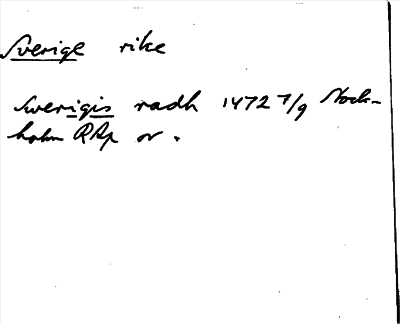 Sverige rike
Swerigis radh 1472 7/9 Stock-
holm RAp or.